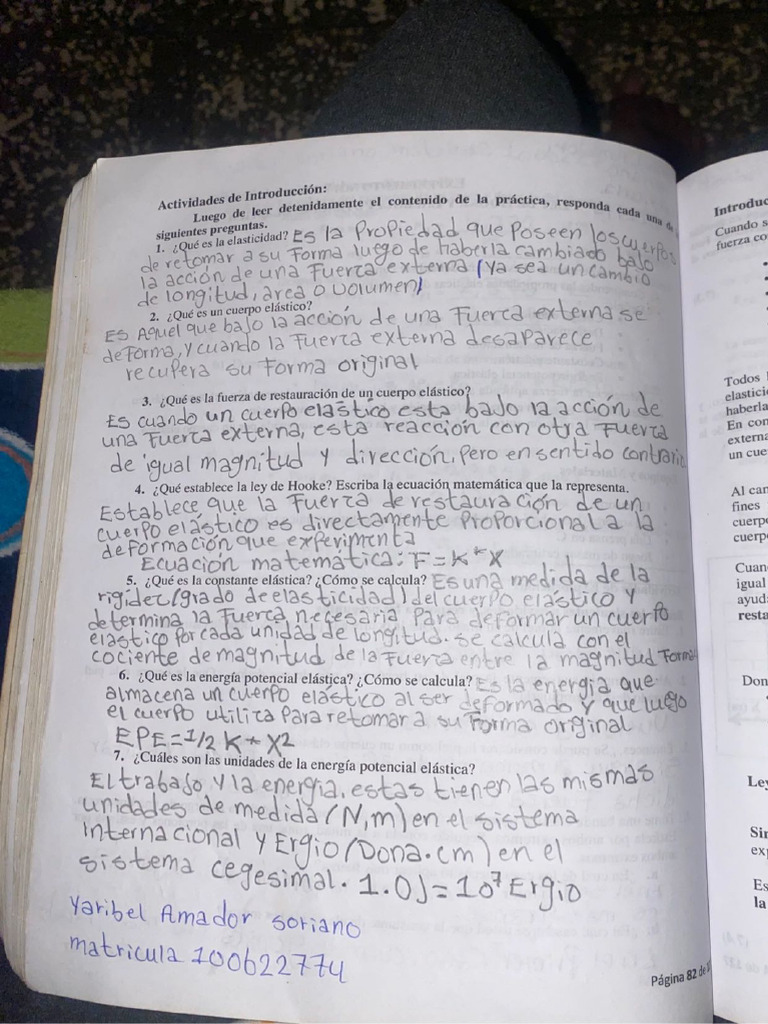 Actividades de Introducción:
Luego de leer detenidamente el contenido de la práctica, responda cada una de
siguientes preguntas.
1. ¿Qué es la elasticidad? Es la Propiedad que Poseen los cuerpos
de retomar a su Forma luego de haberla cambiado bajo
la acción de una Fuerza externa (Ya sea un cambio
de longitud, area o volumen)
2. ¿Qué es un cuerpo elástico?
Es Aquel que bajo la acción de una Fuerza externa se
deforma, y cuando la Fuerza externa desaparece
recupera su Forma original
3. ¿Qué es la fuerza de restauración de un cuerpo elástico?
Es cuando un cuerpo elastico esta bajo la acción de
una Fuerza externa, esta reacción con otra Fuerza
de igual magnitud y dirección, Pero en sentido contrario
4. ¿Qué establece la ley de Hooke? Escriba la ecuación matemática que la representa.
Establece que la Fuerza de restauración de un
cuerpo elástico es directamente Proporcional a la
deformación que experimenta
Ecuación matemática: F=K*X
5. ¿Qué es la constante elástica? ¿Cómo se calcula? Es una medida de la
rigidez (grado de elasticidad) del cuerpo elástico y
determina la Fuerza necesaria Para deformar un cuerpo
elástico Por cada unidad de longitud. se calcula con el
cociente de magnitud de la Fuerza entre la magnitud Forma
6. ¿Qué es la energía potencial elástica? ¿Cómo se calcula? Es la energia que
almacena un cuerpo elástico al ser deformado y que luego
el cuerpo utiliza Para retomar a su Forma original
EPE=1/2 K* X2
7. ¿Cuáles son las unidades de la energía potencial elástica?
El trabajo y la energia, estas tienen las mismas
unidades de medida (N,m) en el sistema
internacional y Ergio (Dona.cm) en el
sistema cegesimal. 1.0J=10⁷ Ergio
Yaribel Amador Soriano
matricula 100622774
Página 82 de
Introduc
Cuando s
fuerza co
Todos
elastici
haberla
En con
externa
un cue
Al can
fines
cuerp
cuerp
Cuan
igual
ayud
resta
Don
Ley
Sin
exp
Es
la